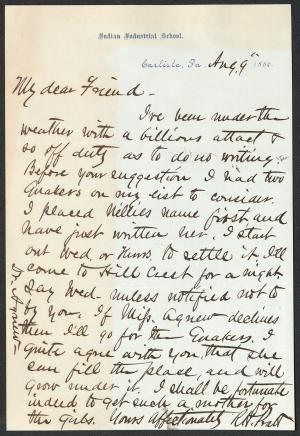 Indian Industrial School.
Carlisle, Pa Aug. 9" 188
My dear Friend -
I've been under the
weather with a billious attact &
so off duty as to do no writing.
Before your suggestion I had two
Quakers on my list to consider.
I placed Nillies name first and
have just written her. I start
out Wed. or Thurs. to settle it. I'll
come to Hill Crest for a night
say Wed. unless notified not to
by you. If Miss. Agnew declines
then I'll go for the Quakers. I
quite agree with you that she
can fill the place, and will
grow under it. I shall be fortunate
indeed to get such a mother for
the girls. Yours affectionately R.H. Pratt